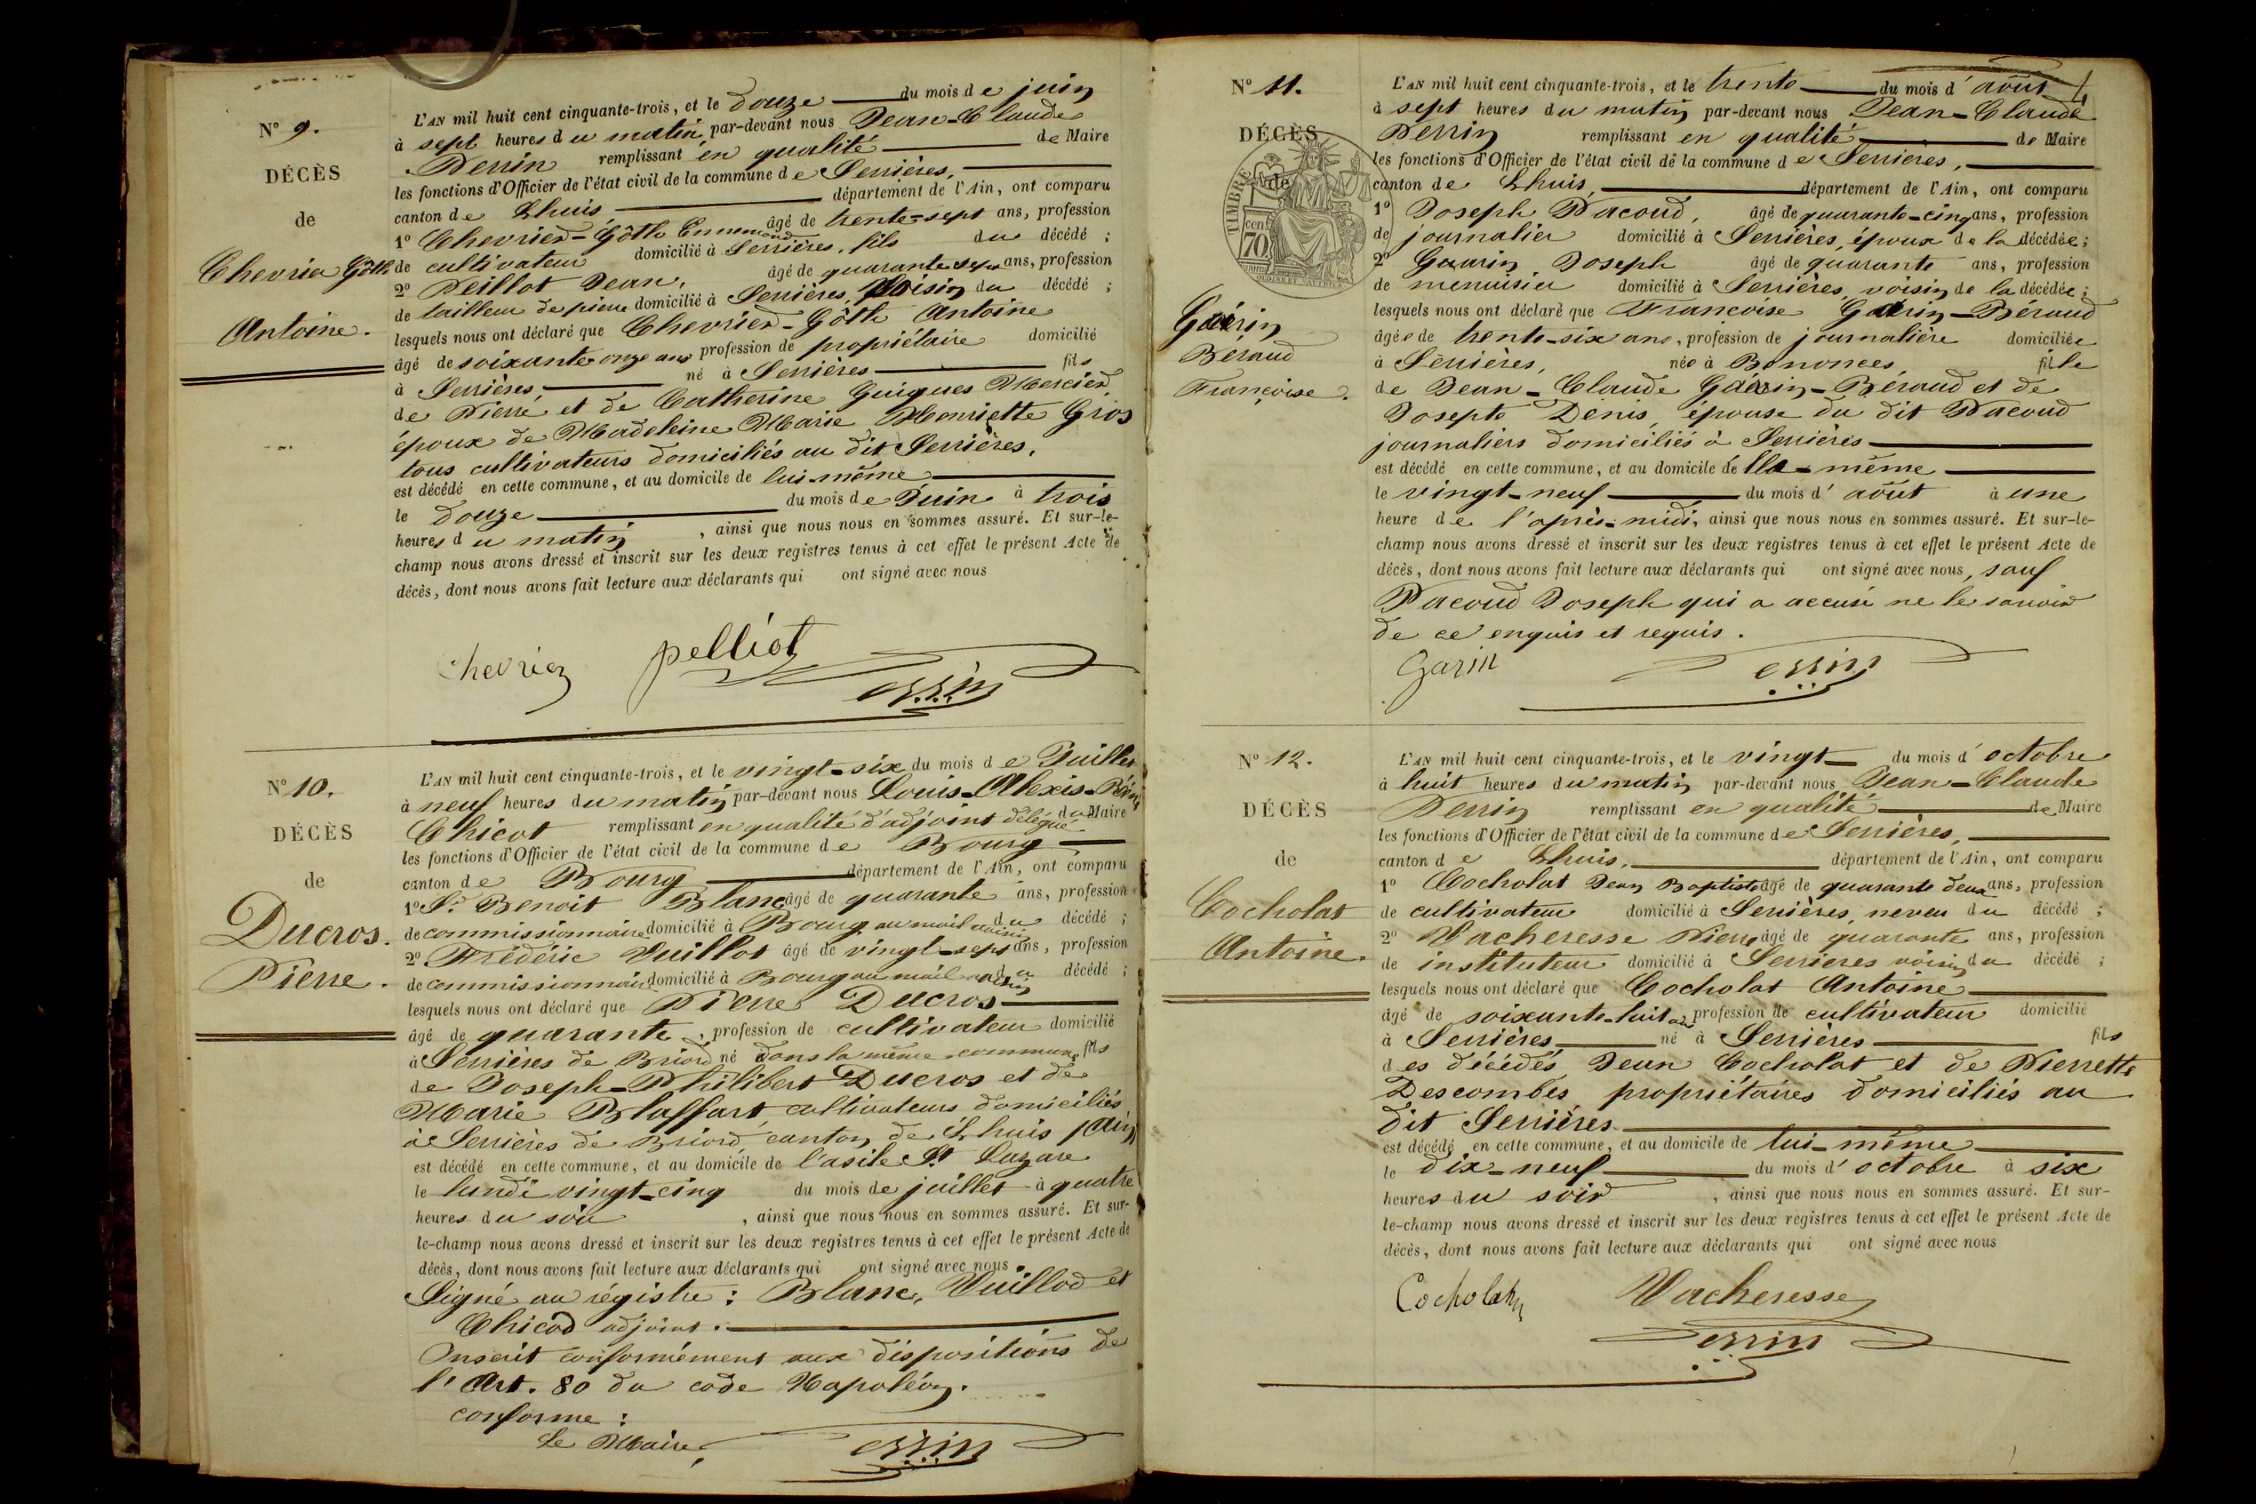 Nº 9.
DÉCÈS
de
Chevrier Gôth
Antoine.
L'AN mil huit cent cinquante-trois, et le douze du mois de juin
à sept heures du matin par-devant nous Jean-Claude
Perrin remplissant en qualité de Maire
les fonctions d'Officier de l'état civil de la commune de Serrières,
canton de Lhuis département de l'Ain, ont comparu
1º Chevrier-Gôth Ennemond âgé de trente-sept ans, profession
de cultivateur domicilié à Serrières, fils du décédé ;
2º Peillot Jean, âgé de quarante sept ans, profession
de tailleur de pierre domicilié à Serrières, voisin du décédé ;
lesquels nous ont déclaré que Chevrier-Gôth Antoine
âgé de soixante onze ans profession de propriétaire domicilié
à Serrières, né à Serrières fils
de Pierre, et de Catherine Guigues Mercier,
époux de Madeleine Marie Henriette Gros
tous cultivateurs domiciliés au dit Serrières.
est décédé en cette commune, et au domicile de lui-même
le douze du mois de Juin à trois
heures du matin , ainsi que nous nous en sommes assuré. Et sur-le-
champ nous avons dressé et inscrit sur les deux registres tenus à cet effet le présent Acte de
décès, dont nous avons fait lecture aux déclarants qui ont signé avec nous
Chevrier pelliot
Perrin
Nº 10.
DÉCÈS
de
Ducros.
Pierre.
L'AN mil huit cent cinquante-trois, et le vingt-six du mois de Juillet
à neuf heures du matin par-devant nous Louis-Alexis-Rémi
Chicot remplissant en qualité d'adjoint délégué du Maire
les fonctions d'Officier de l'état civil de la commune de Bourg
canton de Bourg département de l'Ain, ont comparu
1º Sr. Benoit Blanc âgé de quarante ans, profession
de commissionnaire domicilié à Bourg au mail voisin du décédé ;
2º Frédéric Vuillot âgé de vingt-sept ans, profession
de commissionnaire domicilié à Bourg au mail voisin du décédé ;
lesquels nous ont déclaré que Pierre Ducros
âgé de quarante, profession de cultivateur domicilié
à Serrières de Briord né dans la même commune fils
de Joseph-Philibert Ducros et de
Marie Blaffart, cultivateurs domiciliés
à Serrières de Briord, canton de Lhuis (Ain)
est décédé en cette commune, et au domicile de l'asile St. Lazare
le lundi vingt-cinq du mois de juillet à quatre
heures du soir , ainsi que nous nous en sommes assuré. Et sur-
le-champ nous avons dressé et inscrit sur les deux registres tenus à cet effet le présent Acte de
décès, dont nous avons fait lecture aux déclarants qui ont signé avec nous.
Signé au régistre : Blanc, Vuillod et
Chicod adjoint.
Inscrit conformément aux dispositions de
l'Art. 80 du code Napoléon.
conforme :
Le Maire,
Perrin
4
Nº 11.
DÉCÈS
de
TIMBRE
70
Garin
Béraud
Françoise.
L'AN mil huit cent cinquante-trois, et le trente du mois d'août
à sept heures du matin par-devant nous Jean-Claude
Perrin remplissant en qualité de Maire
les fonctions d'Officier de l'état civil de la commune de Serrières,
canton de Lhuis, département de l'Ain, ont comparu
1º Joseph Pacoud, âgé de quarante-cinq ans, profession
de journalier domicilié à Serrières, époux de la décédée ;
2º Garin Joseph âgé de quarante ans, profession
de menuisier domicilié à Serrières, voisin de la décédée ;
lesquels nous ont déclaré que Françoise Garin-Béraud
âgée de trente-six ans, profession de journalière domiciliée
à Serrières, née à Bénonces, fille
de Jean-Claude Garin-Béraud et de
Josepte Denis, épouse du dit Pacoud
journaliers domiciliés à Serrières
est décédé en cette commune, et au domicile d'elle-même
le vingt-neuf du mois d'août à une
heure de l'après-midi, ainsi que nous nous en sommes assuré. Et sur-le-
champ nous avons dressé et inscrit sur les deux registres tenus à cet effet le présent Acte de
décès, dont nous avons fait lecture aux déclarants qui ont signé avec nous, sauf
Pacoud Joseph qui a accusé ne le savoir
de ce enquis et requis.
Garin Perrin
Nº 12.
DÉCÈS
de
Cocholat
Antoine.
L'AN mil huit cent cinquante-trois, et le vingt du mois d'octobre
à huit heures du matin par-devant nous Jean-Claude
Perrin remplissant en qualité de Maire
les fonctions d'Officier de l'état civil de la commune de Serrières,
canton de Lhuis, département de l'Ain, ont comparu
1º Cocholat Jean Baptiste âgé de quarante deux ans, profession
de cultivateur domicilié à Serrières, neveu du décédé ;
2º Vacheresse Pierre âgé de quarante ans, profession
de instituteur domicilié à Serrières voisin du décédé ;
lesquels nous ont déclaré que Cocholat Antoine
âgé de soixante-huit ans profession de cultivateur domicilié
à Serrières né à Serrières fils
des décédés Jean Cocholat et de Pierrette
Descombes propriétaires domiciliés au
dit Serrières
est décédé en cette commune, et au domicile de lui-même
le dix-neuf du mois d'octobre à six
heures du soir , ainsi que nous nous en sommes assuré. Et sur-
le-champ nous avons dressé et inscrit sur les deux registres tenus à cet effet le présent Acte de
décès, dont nous avons fait lecture aux déclarants qui ont signé avec nous
Cocholat Vacheresse
Perrin